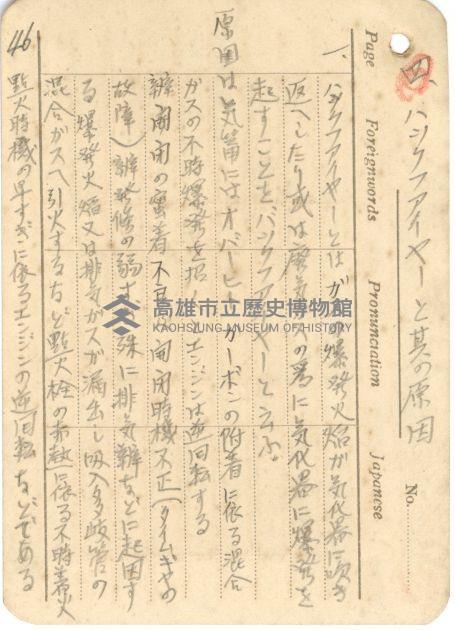 四、バックファイヤーと其の原因
Page Foreignwords Pronunciation Japanese No.
一、バックファイヤーとはガスの爆発火焔が気化器に吹き
返へしたり或は廃気ガスの為に気化器に爆発を
起すことをバックファイヤーと云ふ。
原因は気筩にはオバーヒートカーボンの附着に依る混合
ガスの不時爆発を招きエンジンは逆回転する
辨開閉の密着不良開閉時機不正(タイムギヤの
故障)辨発條の弱すぎ殊に排気辨などに起因す
る爆発火焔又は排気ガスが漏出し吸入多岐管の
混合ガスへ引火するなど點火栓の赤熱に依る不時着火
點火時機の早すぎに依るエンジンの逆回転などである
46
高雄市立歷史博物館
KAOHSIUNG MUSEUM OF HISTORY